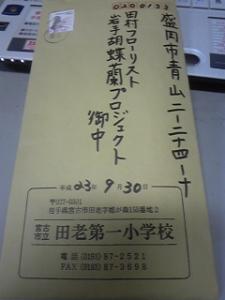 0200133
盛岡市青山二-二十四-十
田村フローリスト
岩手胡蝶蘭プロジェクト
御中
平成 23年 9月 30日
〒027-0301
岩手県宮古市田老字館が森155番地2
宮古市立 田老第一小学校
電話 (0193) 87-2521
FAX (0193) 87-3698